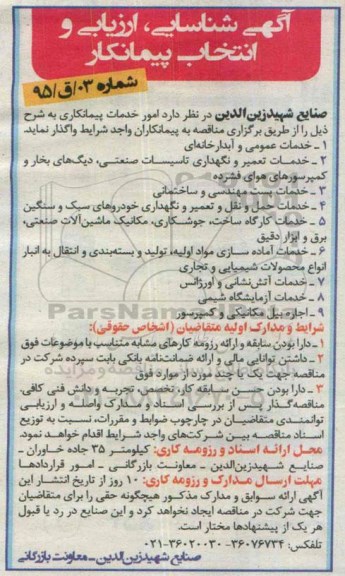 آگهی شناسایی، ارزیابی و
انتخاب پیمانکار
شماره ۰۳/ق/۹۵
صنایع شهیدزین‌الدین در نظر دارد امور خدمات پیمانکاری به شرح
ذیل را از طریق برگزاری مناقصه به پیمانکاران واجد شرایط واگذار نماید.
۱ - خدمات عمومی و آبدارخانه‌ای
۲ - خدمات تعمیر و نگهداری تاسیسات صنعتی، دیگ‌های بخار و
کمپرسورهای هوای فشرده
۳ - خدمات پست مهندسی و ساختمانی
۴ - خدمات حمل و نقل و تعمیر و نگهداری خودروهای سبک و سنگین
۵ - خدمات کارگاه ساخت، جوشکاری، مکانیک ماشین‌آلات صنعتی،
برق و ابزار دقیق
۶ - خدمات آماده سازی مواد اولیه، تولید و بسته‌بندی و انتقال به انبار
انواع محصولات شیمیایی و تجاری
۷ - خدمات آتش‌نشانی و اورژانس
۸ - خدمات آزمایشگاه شیمی
۹ - اجاره بیل مکانیکی و کمپرسور
شرایط و مدارک اولیه متقاضیان (اشخاص حقوقی):
۱ - دارا بودن سابقه و ارائه رزومه کارهای مشابه متناسب با موضوعات فوق
۲ - داشتن توانایی مالی و ارائه ضمانت‌نامه بانکی بابت سپرده شرکت در
مناقصه جهت یک یا چند مورد از موارد فوق
۳ - دارا بودن حسن سابقه کار، تخصص، تجربه و دانش فنی کافی.
مناقصه‌گذار پس از بررسی اسناد و مدارک واصله و ارزیابی
توانمندی متقاضیان در چارچوب ضوابط و مقررات، نسبت به توزیع
اسناد مناقصه بین شرکت‌های واجد شرایط اقدام خواهد نمود.
محل ارائه اسناد و رزومه کاری: کیلومتر ۳۵ جاده خاوران -
صنایع شهیدزین‌الدین - معاونت بازرگانی - امور قراردادها
مهلت ارسال مدارک و رزومه کاری: ۱۰ روز از تاریخ انتشار این
آگهی ارائه سوابق و مدارک مذکور هیچگونه حقی را برای متقاضیان
جهت شرکت در مناقصه ایجاد نخواهد کرد و این صنایع در رد یا قبول
هر یک از پیشنهادها مختار است.
تلفکس: ۳۶۰۷۶۷۳۴ - ۳۶۰۲۰۰۳۰-۰۲۱
صنایع شهیدزین‌الدین - معاونت بازرگانی